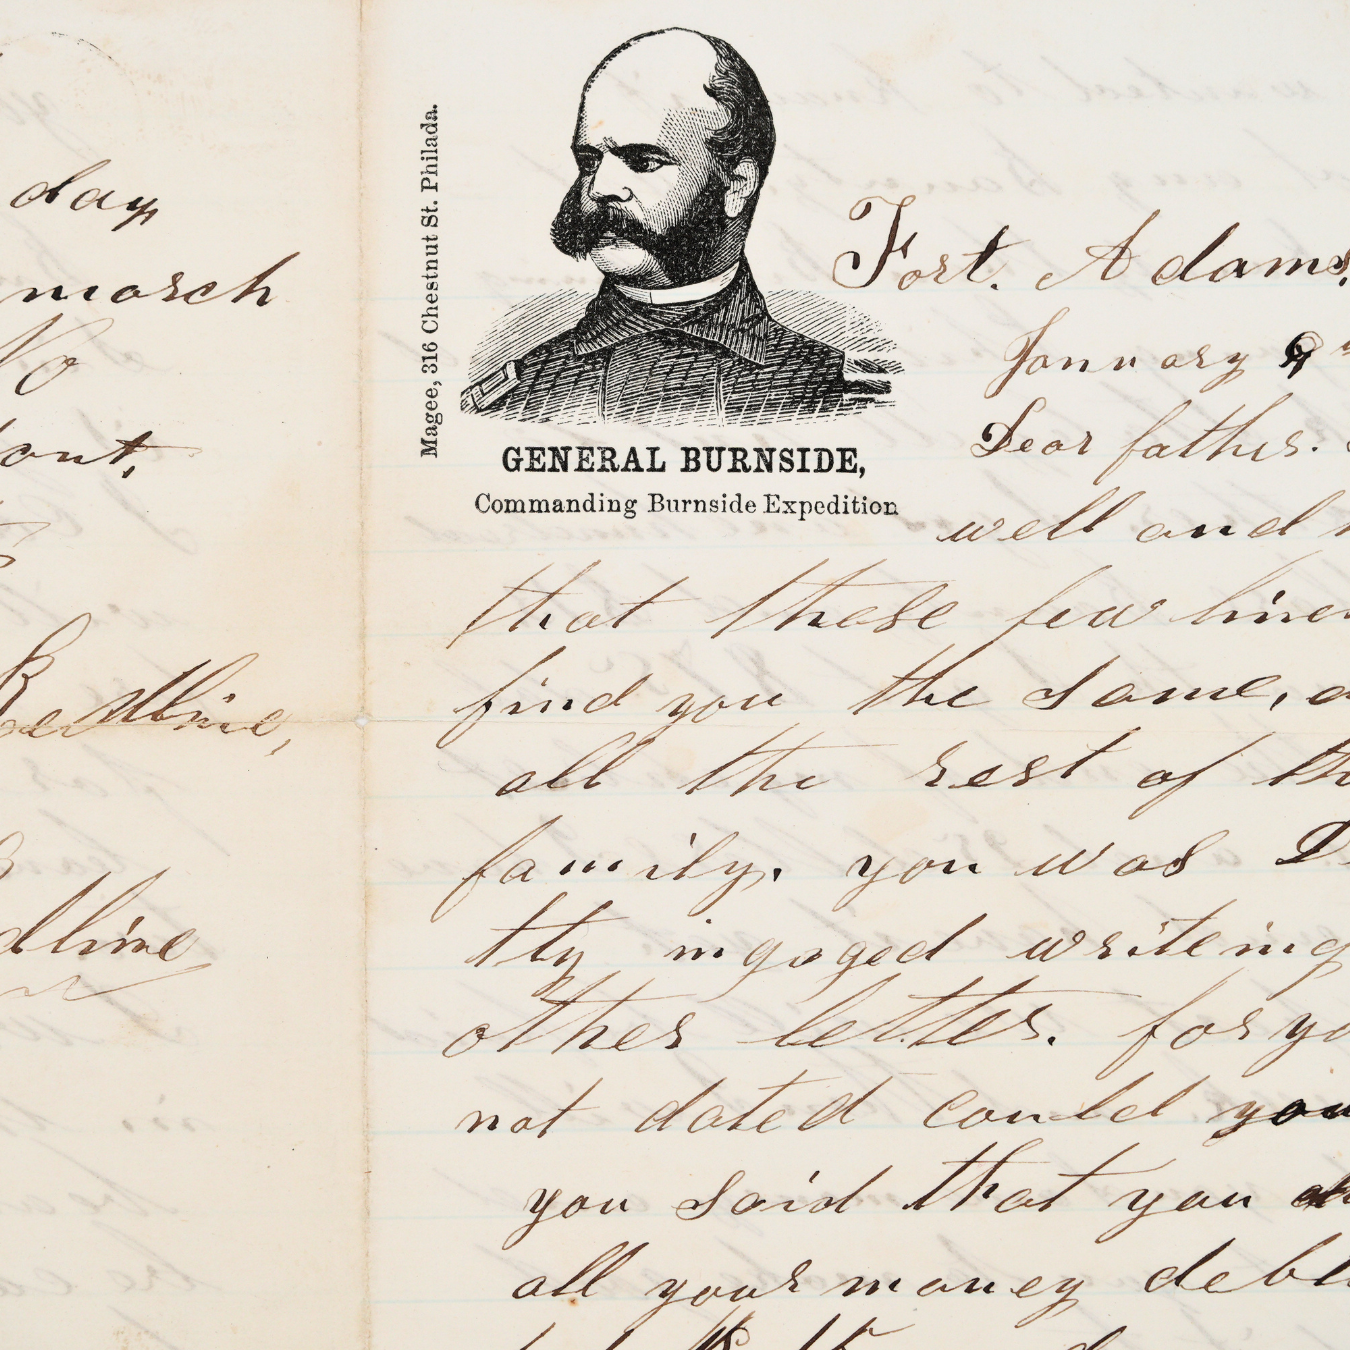 day
march
No
ont,
Beedline,
dline
Magee, 316 Chestnut St. Philada.
GENERAL BURNSIDE,
Commanding Burnside Expedition
Fort. Adams,
January
Dear father.
well and
that those few lines
find you the same,
all the rest of the
family. you was
tty ingaged writeing
other letter. for yo
not dated could you
you said that you
all your money